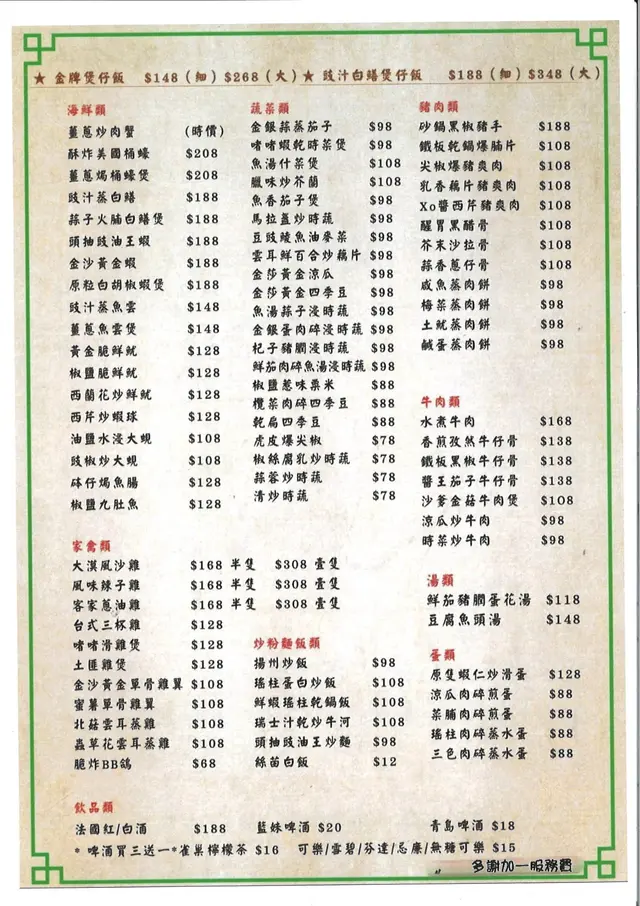 ★ 金牌煲仔飯 $148（細）$268（大）★ 豉汁白鱔煲仔飯 $188（細）$348（大）
海鮮類
薑蔥炒肉蟹 (時價)
酥炸美國桶蠔 $208
薑蔥焗桶蠔煲 $208
豉汁蒸白鱔 $188
蒜子火腩白鱔煲 $188
頭抽豉油王蝦 $188
金沙黃金蝦 $188
原粒白胡椒蝦煲 $188
豉汁蒸魚雲 $148
薑蔥魚雲煲 $148
黃金脆鮮魷 $128
椒鹽脆鮮魷 $128
西蘭花炒鮮魷 $128
西芹炒蝦球 $128
油鹽水浸大蜆 $108
豉椒炒大蜆 $108
砵仔焗魚腸 $128
椒鹽九肚魚 $128
家禽類
大漠風沙雞 $168 半隻 $308 壹隻
風味辣子雞 $168 半隻 $308 壹隻
客家蔥油雞 $168 半隻 $308 壹隻
台式三杯雞 $128
啫啫滑雞煲 $128
土匪雞煲 $128
金沙黃金單骨雞翼 $108
蜜薯單骨雞翼 $108
北菇雲耳蒸雞 $108
蟲草花雲耳蒸雞 $108
脆炸BB鴿 $68
蔬菜類
金銀蒜蒸茄子 $98
啫啫蝦乾時菜煲 $98
魚湯什菜煲 $108
臘味炒芥蘭 $108
魚香茄子煲 $98
馬拉盞炒時蔬 $98
豆豉鯪魚油麥菜 $98
雲耳鮮百合炒藕片 $98
金莎黃金涼瓜 $98
金莎黃金四季豆 $98
魚湯蒜子浸時蔬 $98
金銀蛋肉碎浸時蔬 $98
杞子豬膶浸時蔬 $98
鮮茄肉碎魚湯浸時蔬 $98
椒鹽惹味粟米 $88
欖菜肉碎四季豆 $88
乾扁四季豆 $88
虎皮爆尖椒 $78
椒絲腐乳炒時蔬 $78
蒜蓉炒時蔬 $78
清炒時蔬 $78
炒粉麵飯類
揚州炒飯 $98
瑤柱蛋白炒飯 $108
鮮蝦瑤柱乾鍋飯 $108
瑞士汁乾炒牛河 $108
頭抽豉油王炒麵 $98
絲苗白飯 $12
豬肉類
砂鍋黑椒豬手 $188
鐵板乾鍋爆腩片 $108
尖椒爆豬爽肉 $108
乳香藕片豬爽肉 $108
Xo醬西芹豬爽肉 $108
醒胃黑醋骨 $108
芥末沙拉骨 $108
蒜香蔥仔骨 $108
咸魚蒸肉餅 $98
梅菜蒸肉餅 $98
土魷蒸肉餅 $98
鹹蛋蒸肉餅 $98
牛肉類
水煮牛肉 $168
香煎孜然牛仔骨 $138
鐵板黑椒牛仔骨 $138
醬王茄子牛仔骨 $138
沙爹金菇牛肉煲 $108
涼瓜炒牛肉 $98
時菜炒牛肉 $98
湯類
鮮茄豬膶蛋花湯 $118
豆腐魚頭湯 $148
蛋類
原隻蝦仁炒滑蛋 $128
涼瓜肉碎煎蛋 $88
菜脯肉碎煎蛋 $88
瑤柱肉碎蒸水蛋 $88
三色肉碎蒸水蛋 $88
飲品類
法國紅/白酒 $188 藍妹啤酒 $20 青島啤酒 $18
* 啤酒買三送一*雀巢檸檬茶 $16 可樂/雪碧/芬達/忌廉/無糖可樂 $15
多謝加一服務費